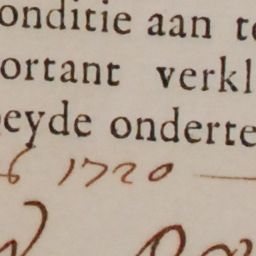 onditie aan te
ortant verkl
eyde onderte
6 1720